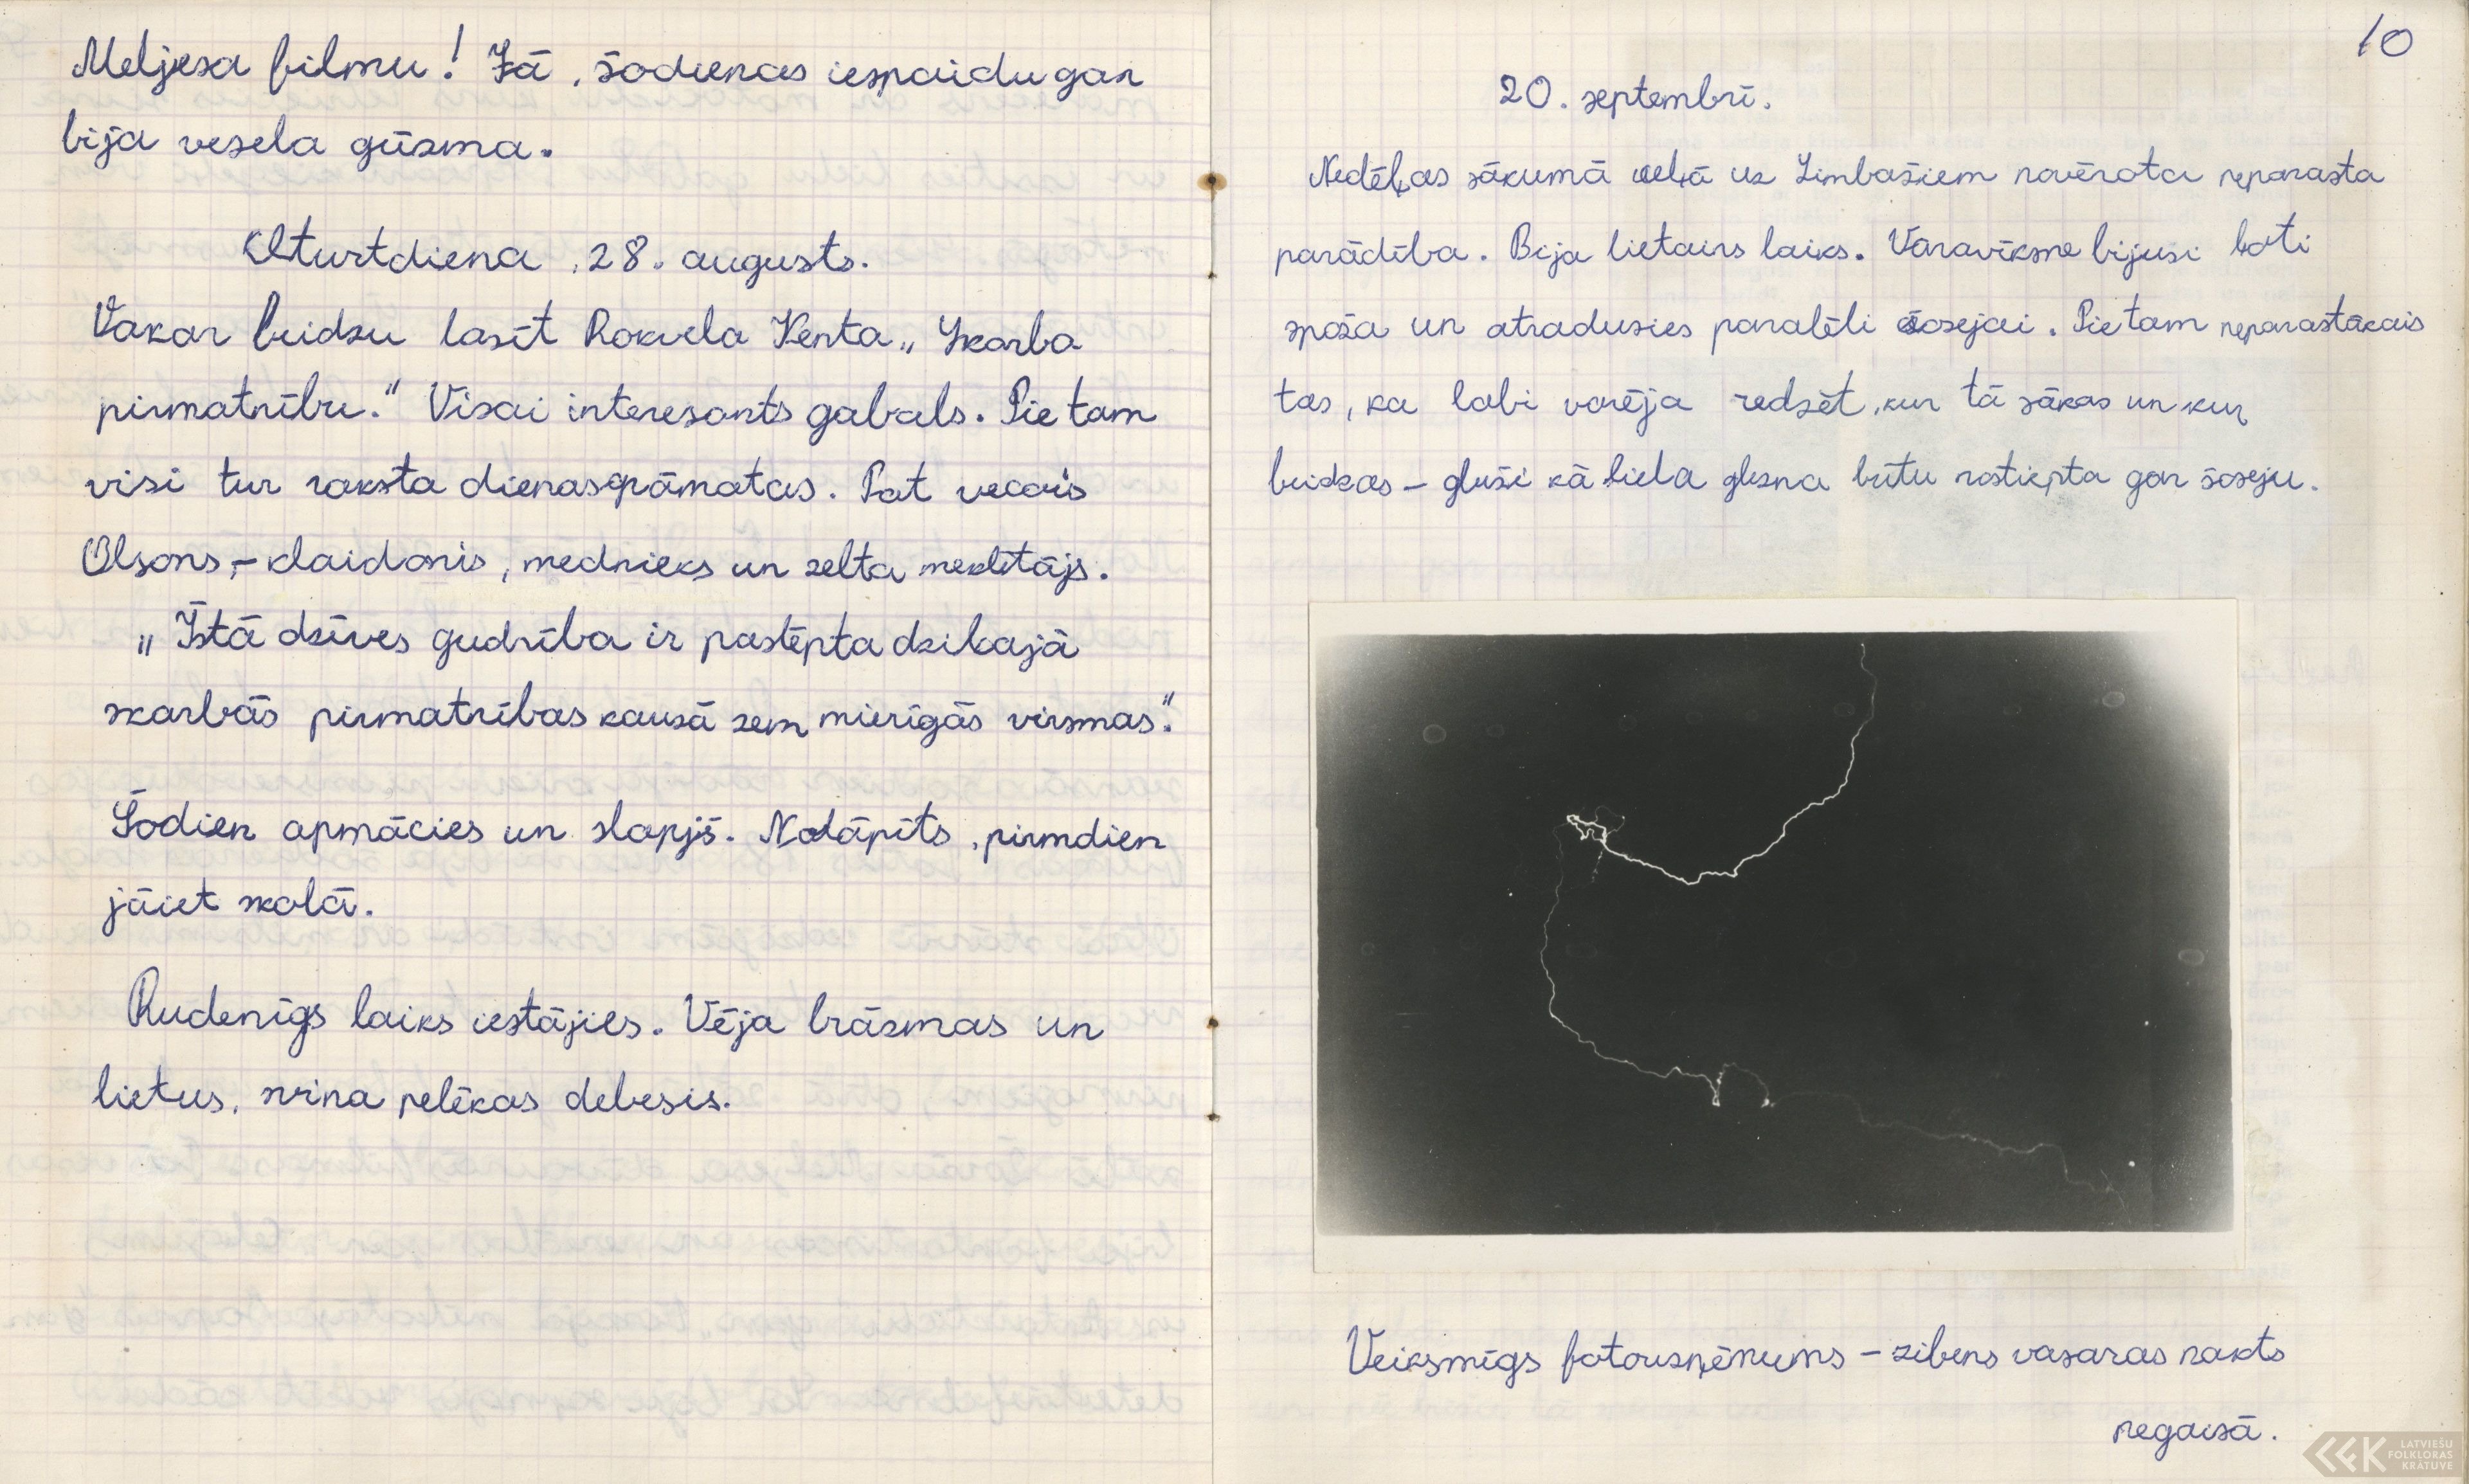 Meljesa filmu! Jā, šodienas iespaidu gan
bija vesela gūzma.
Ceturtdiena, 28. augusts.
Vakar beidzu lasīt Rokvela Kenta „Skarba
pirmatnība." Visai interesants gabals. Pie tam
visi tur raksta dienasgrāmatas. Pat vecais
Olsons, – klaidonis, mednieks un zelta meklētājs.
„Īstā dzīves gudrība ir paslēpta dziļajā
skarbās pirmatnības kausā zem mierīgās virsmas."
Šodien apmācies un slapjš. Nolāpīts, pirmdien
jāiet skolā.
Rudenīgs laiks iestājies. Vēja brāzmas un
lietus, svina pelēkas debesis.
10
20. septembrī.
Nedēļas sākumā ceļā uz Limbažiem novērota neparasta
parādība. Bija lietains laiks. Varavīksne bijusi ļoti
spoža un atradusies paralēli šosejai. Pie tam neparastākais
tas, ka labi varēja redzēt, kur tā sākas un kur
beidzas – gluži kā liela glezna būtu izstiepta gar šoseju.
Veiksmīgs fotouzņēmums – zibens vasaras nakts
negaisā.
LATVIEŠU
FOLKLORAS
KRĀTUVE